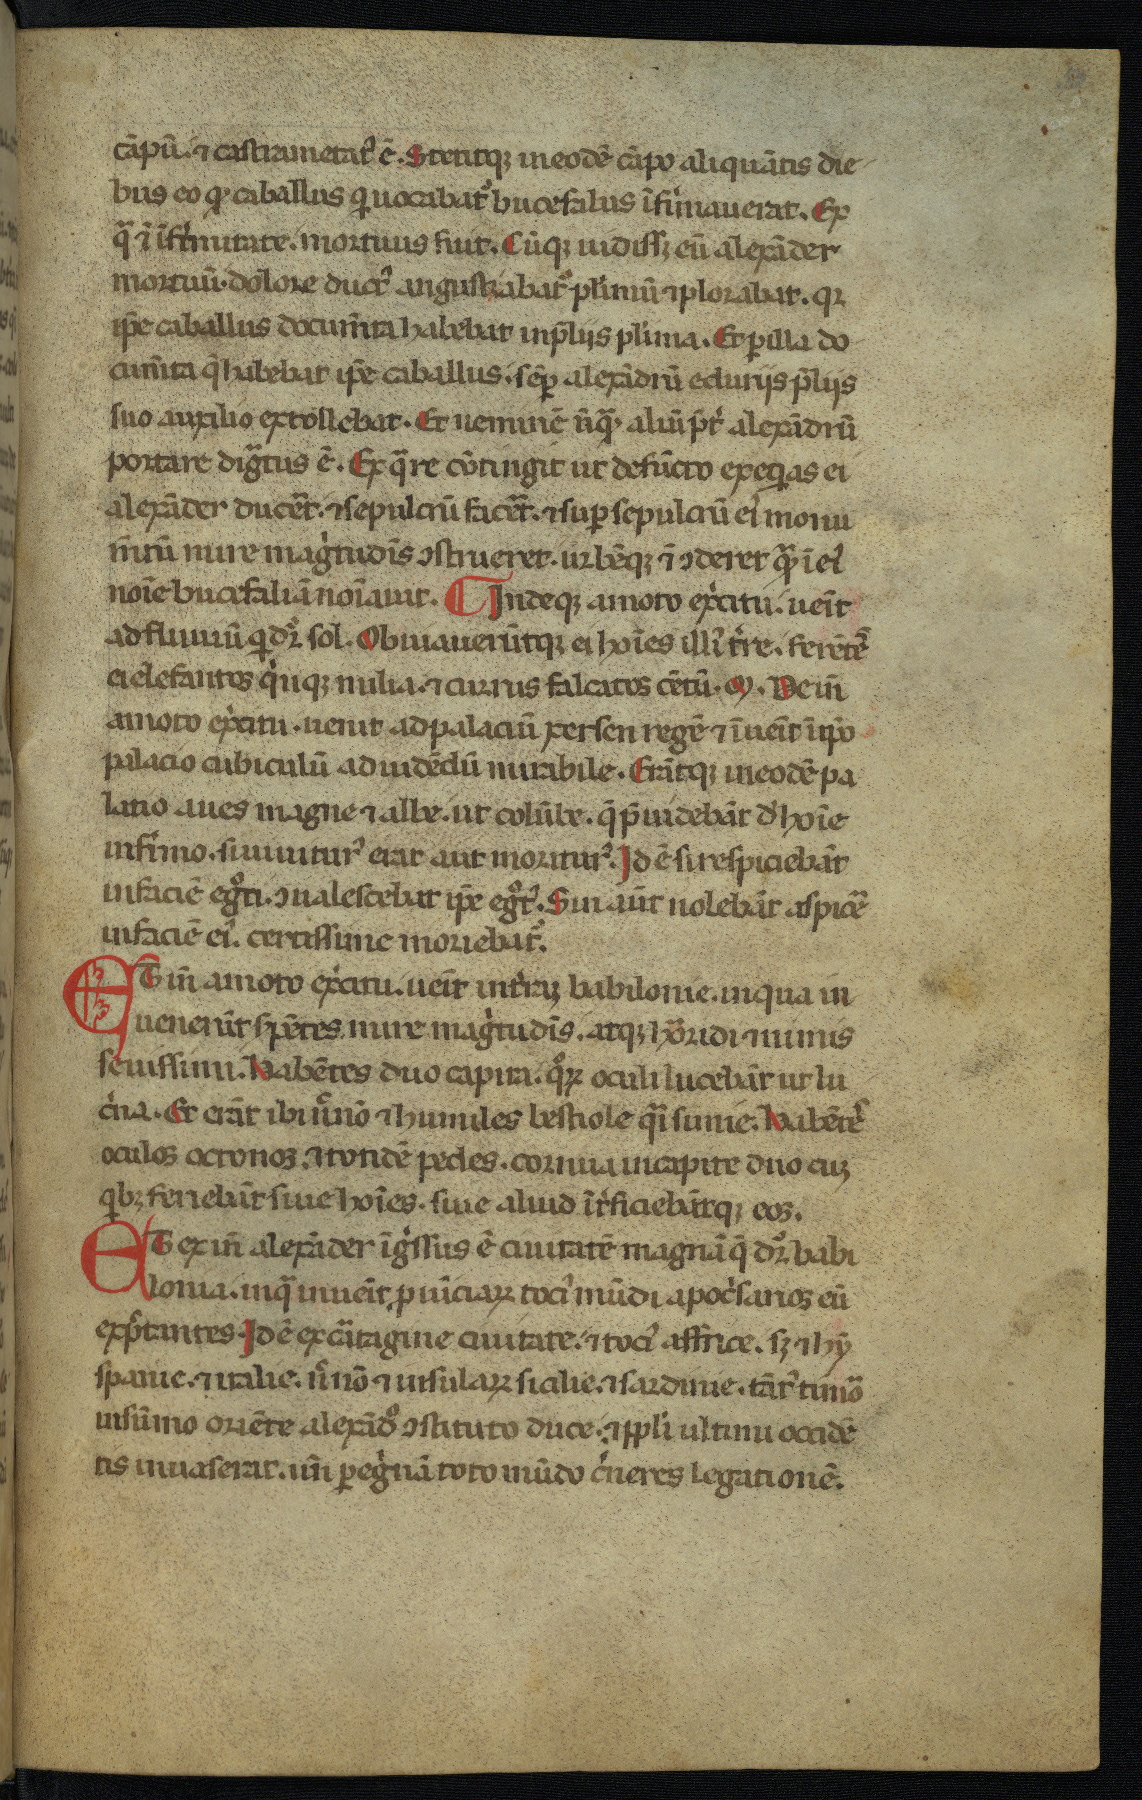 cāpū. ⁊ castrametat᷒ ē. Stetitqꝫ in eodē cāpo aliquātis die
bus eo qꝛ caballus q̇ uocabat᷒ bucefalus īfirmauerat. Ex
qͣ ī īfirmitate. mortuus fuit. Cūqꝫ uidissꝫ eū alexāder
mortuū. dolore duct᷒ angustiabat᷒ plimū ⁊ plorabat. qꝛ
ip̄e caballus documt̄a habebat in p̄lijs plima. Et ꝑ illa do
cumt̄a q̄ habebat ip̄e caballus. sēꝑ alexādrū e duriis p̄lijs
suo auxilio extollebat. Et neminē ūqͣ aliū p̄t alexādrū
portare dignͣtus ē. Ex qͣre cōtingit ut defūcto exeqͥas ei
alexāder ducēt. ⁊ sepulcrū facēt. ⁊ suꝑ sepulcrū ei᷒ monu
mt̄ū mire magͥtudīs ↄstrueret. urbēqꝫ ī ↄderet qͣ ī ei᷒
noīe bucifaliā noīauit. Indeqꝫ amoto exc̓itu. ueīt
ad fluuiū qͥ dr̄ sol. Obuiauerūtqꝫ ei hoīes illi᷒ tr̄e. ferētē
ei elefantos qͥnqꝫ milia. ⁊ currus falcatos cētū. ꝯ. Deīn
amoto exc̓itu. uenit ad palaciū xersen regē ⁊ īueīt ī ip̄o
palacio cubiculū ad uidēdū mirabile. Erātqꝫ in eodē pa
latio aues magne ⁊ albe. ut colūbe. q̄ p̄uidebāt d̓ hoīe
infirmo. si uiuitur᷒ erat aut moritur᷒. Id ē si respiciebāt
in faciē egͦti. ↄualescebat ip̄e egͦt᷒. Sin aūt nolebāt aspicē
in faciē ei᷒. certissime moriebat᷒.
ET in̄ amoto exc̓itu. ueīt in tr̄ꝫ babilonie. in qua in
uenerūt sꝑētes mire magͥtudīs. atqꝫ horridi ⁊ nimis
seuissimi. Habētes duo capita. qͦꝝ oculi lucebāt ut lu
c̓na. Et erāt ibi ūnō ⁊ humiles bestiole qͣi simie. Habētē
oculos octonos. ⁊ totidē pedes. cornua in capite duo cuꝫ
qͥbꝫ feriebāt siue hoīes. siue aliud īt̓ficiebātqꝫ eos.
ET ex in̄ alexāder īgͥssus ē ciuitatē magnā q̄ dr̄ babi
lonia. in qͣ inueīt ꝓuīciaꝝ toci᷒ mūdi apoc̓sarios eū
exp̄tantes. Id ē ex cͣtagine ciuitate. ⁊ toci᷒ affrice. sꝫ ⁊ hy
spanie. ⁊ italie. ūnō ⁊ insulaꝝ sicilie. ⁊ sardinie. tāt᷒ timoͬ
in sūmo oriēte alexādͦ ↄstituto duce. ⁊ ppl̄i ultimi occidē
tis inuaserat. un̄ ꝑegͥnā toto mūdo c̓neres legationē.